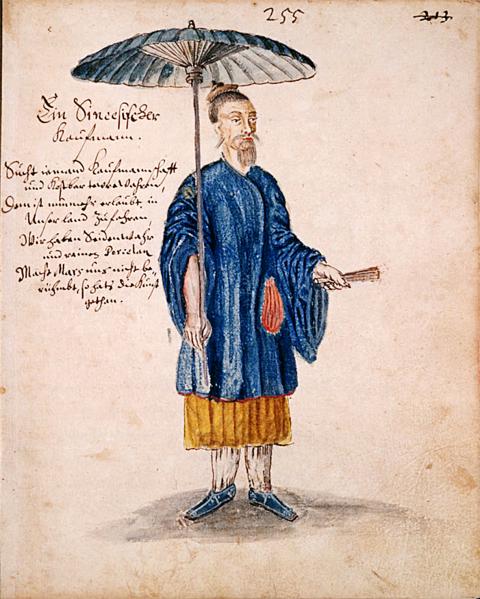 255
213
Ein Sinesischer
Kaufmann.
Sucht iemand Kaufmannschafft
und Kostbar wahren,
Dem ist nunmehr erlaubt in
Unser land Zufahren.
Wir haben Seidenwahr
und reinen Porcelan
Mars uns nicht be-
rühmbt, so hats die Kunst
gethan.